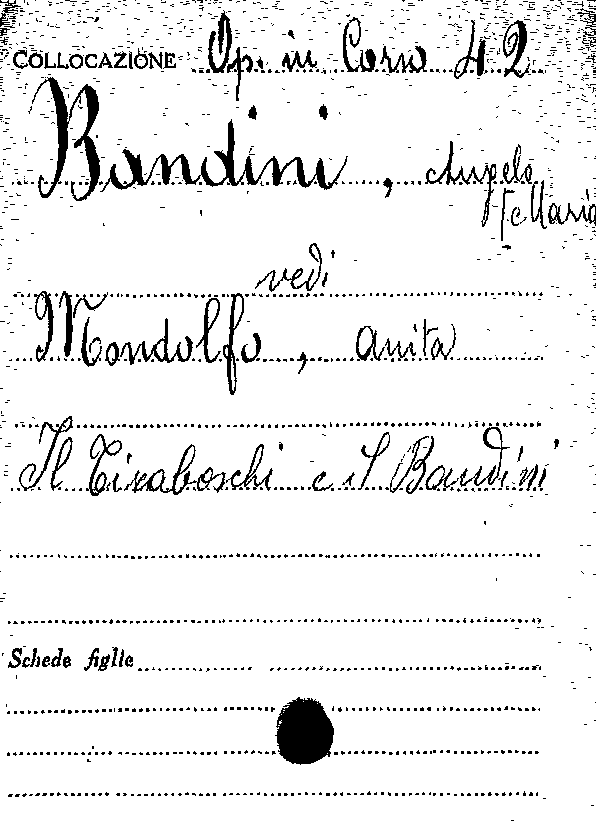 COLLOCAZIONE Op. in Corso 42
Bandini, Angelo
[Maria
vedi
Mondolfo, Anita
Il Tiraboschi e il Bandini
Schede figlie